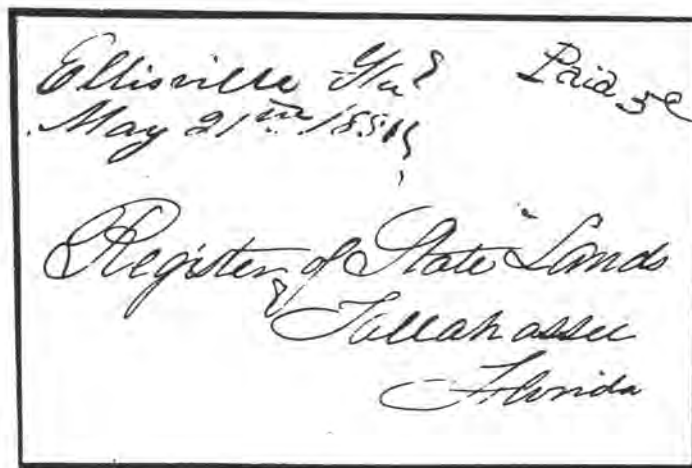 Ellisville Fla Paid 5c
May 21st 1851
Register of State Lands
Tallahassee
Florida